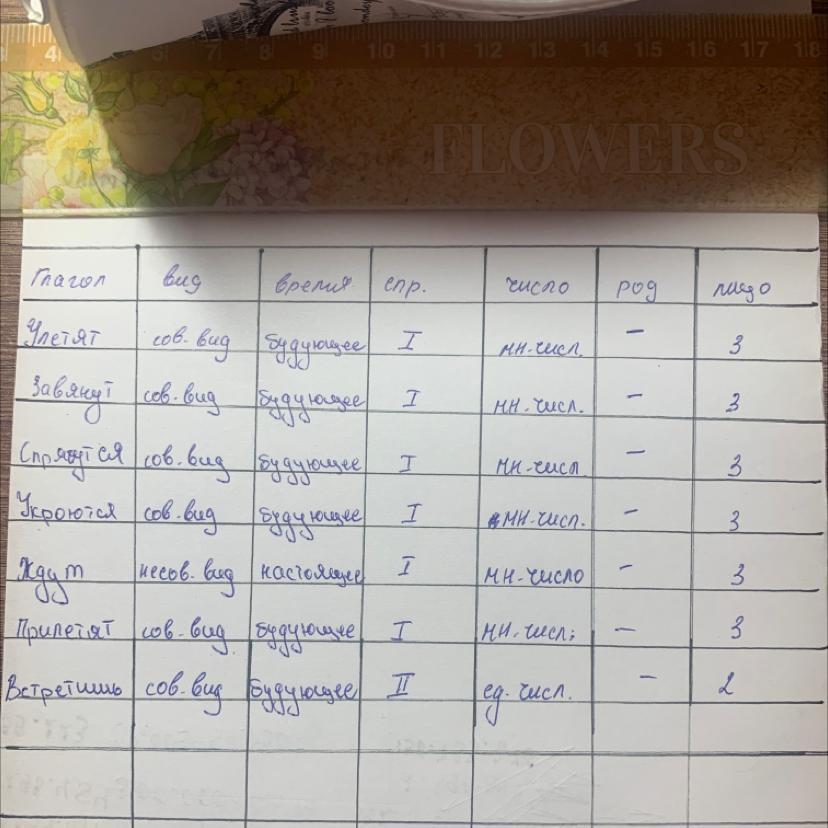 4 7 8 9 10 11 12 13 14 15 16 17 18
FLOWERS
Глагол вид время спр. число род лицо
Улетят сов. вид будующее I мн. числ. – 3
Завянут сов. вид будующее I мн. числ. – 3
Спрянутся сов. вид будующее I мн. числ – 3
Укроются сов. вид будующее I мн. числ. – 3
Ждут несов. вид настоящее I мн. число – 3
Прилетят сов. вид будующее I мн. числ. – 3
Встретишь сов. вид будующее II ед. числ. – 2